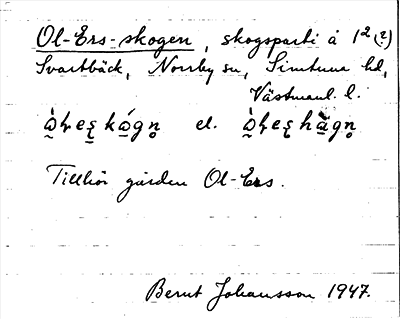 Ol-Ers-skogen, skogsparti å 1² (?)
Svartbäck, Norrby sn, Simtuna hd,
Västmanl. l.
el.
Tillhör gården Ol-Ers.
Bernt Johansson 1947.